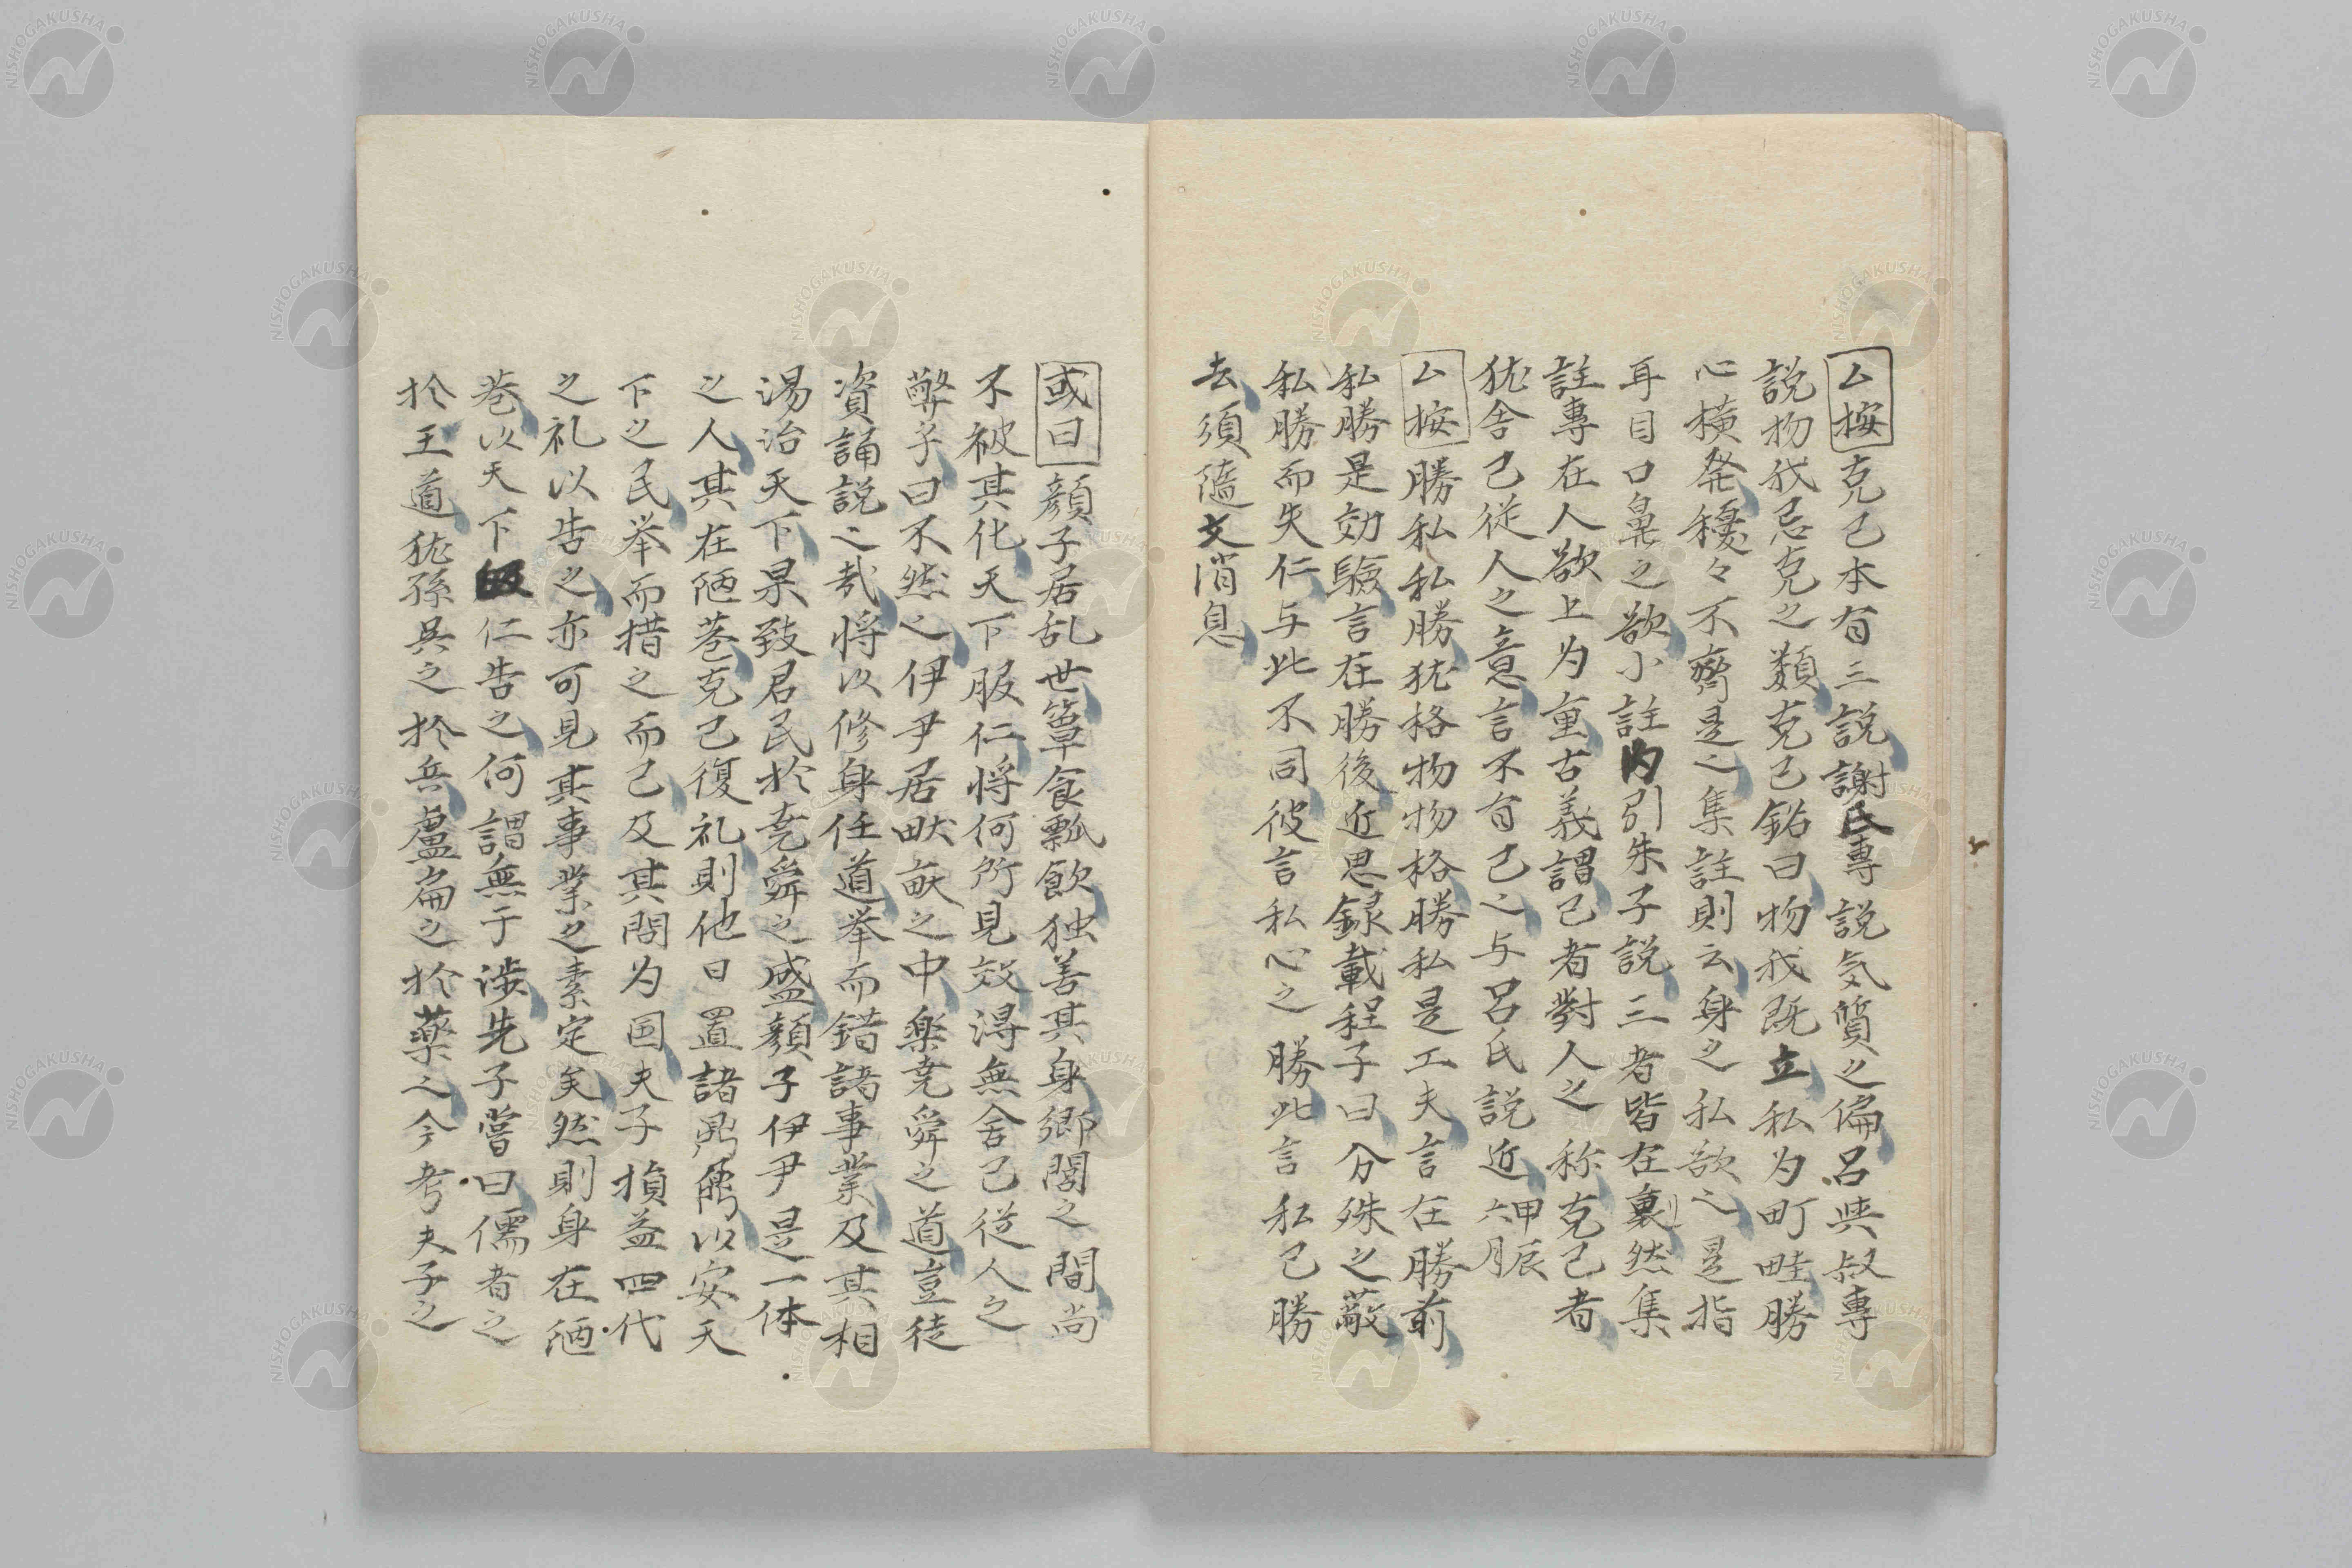 厶按克己本有三説謝氏專説気質之偏呂與叔專
説物我忌克之類克己銘曰物我既立私为町畦勝
心横発穰々不齊是之集註則云身之私欲之是指
耳目口鼻之欲小註内引朱子説三者皆在裏然集
註專在人欲上为重古義謂己者對人之称克己者
犹舍己從人之意言不有己之与呂氏説近六甲脤
厶按勝私私勝犹格物物格勝私是工夫言在勝前
私勝是効驗言在勝後近思録載程子曰分殊之蔽
私勝而失仁与此不同彼言私心之勝此言私已勝
去須隨文消息
或曰顏子居乱世簞食瓢飲独善其身鄉閭之間尚
不被其化天下服仁将何所見效得無舍己從人之
弊乎曰不然之伊尹居畎畝之中樂堯舜之道豈徒
資誦説之哉将以修身任道举而錯諸事業及其相
湯治天下果致君民於堯舜之盛顏子伊尹是一体
之人其在陋巷克己復礼則他日置諸鼎鼐以安天
下之民举而措之而已及其問为囯夫子損益四代
之礼以告之亦可見其事業之素定矣然則身在陋
巷以天下仁告之何謂無于涉先子嘗曰儒者之
於王道犹孫吳之於兵盧扁之於藥之今考夫子之
NISHOGAKUSHA